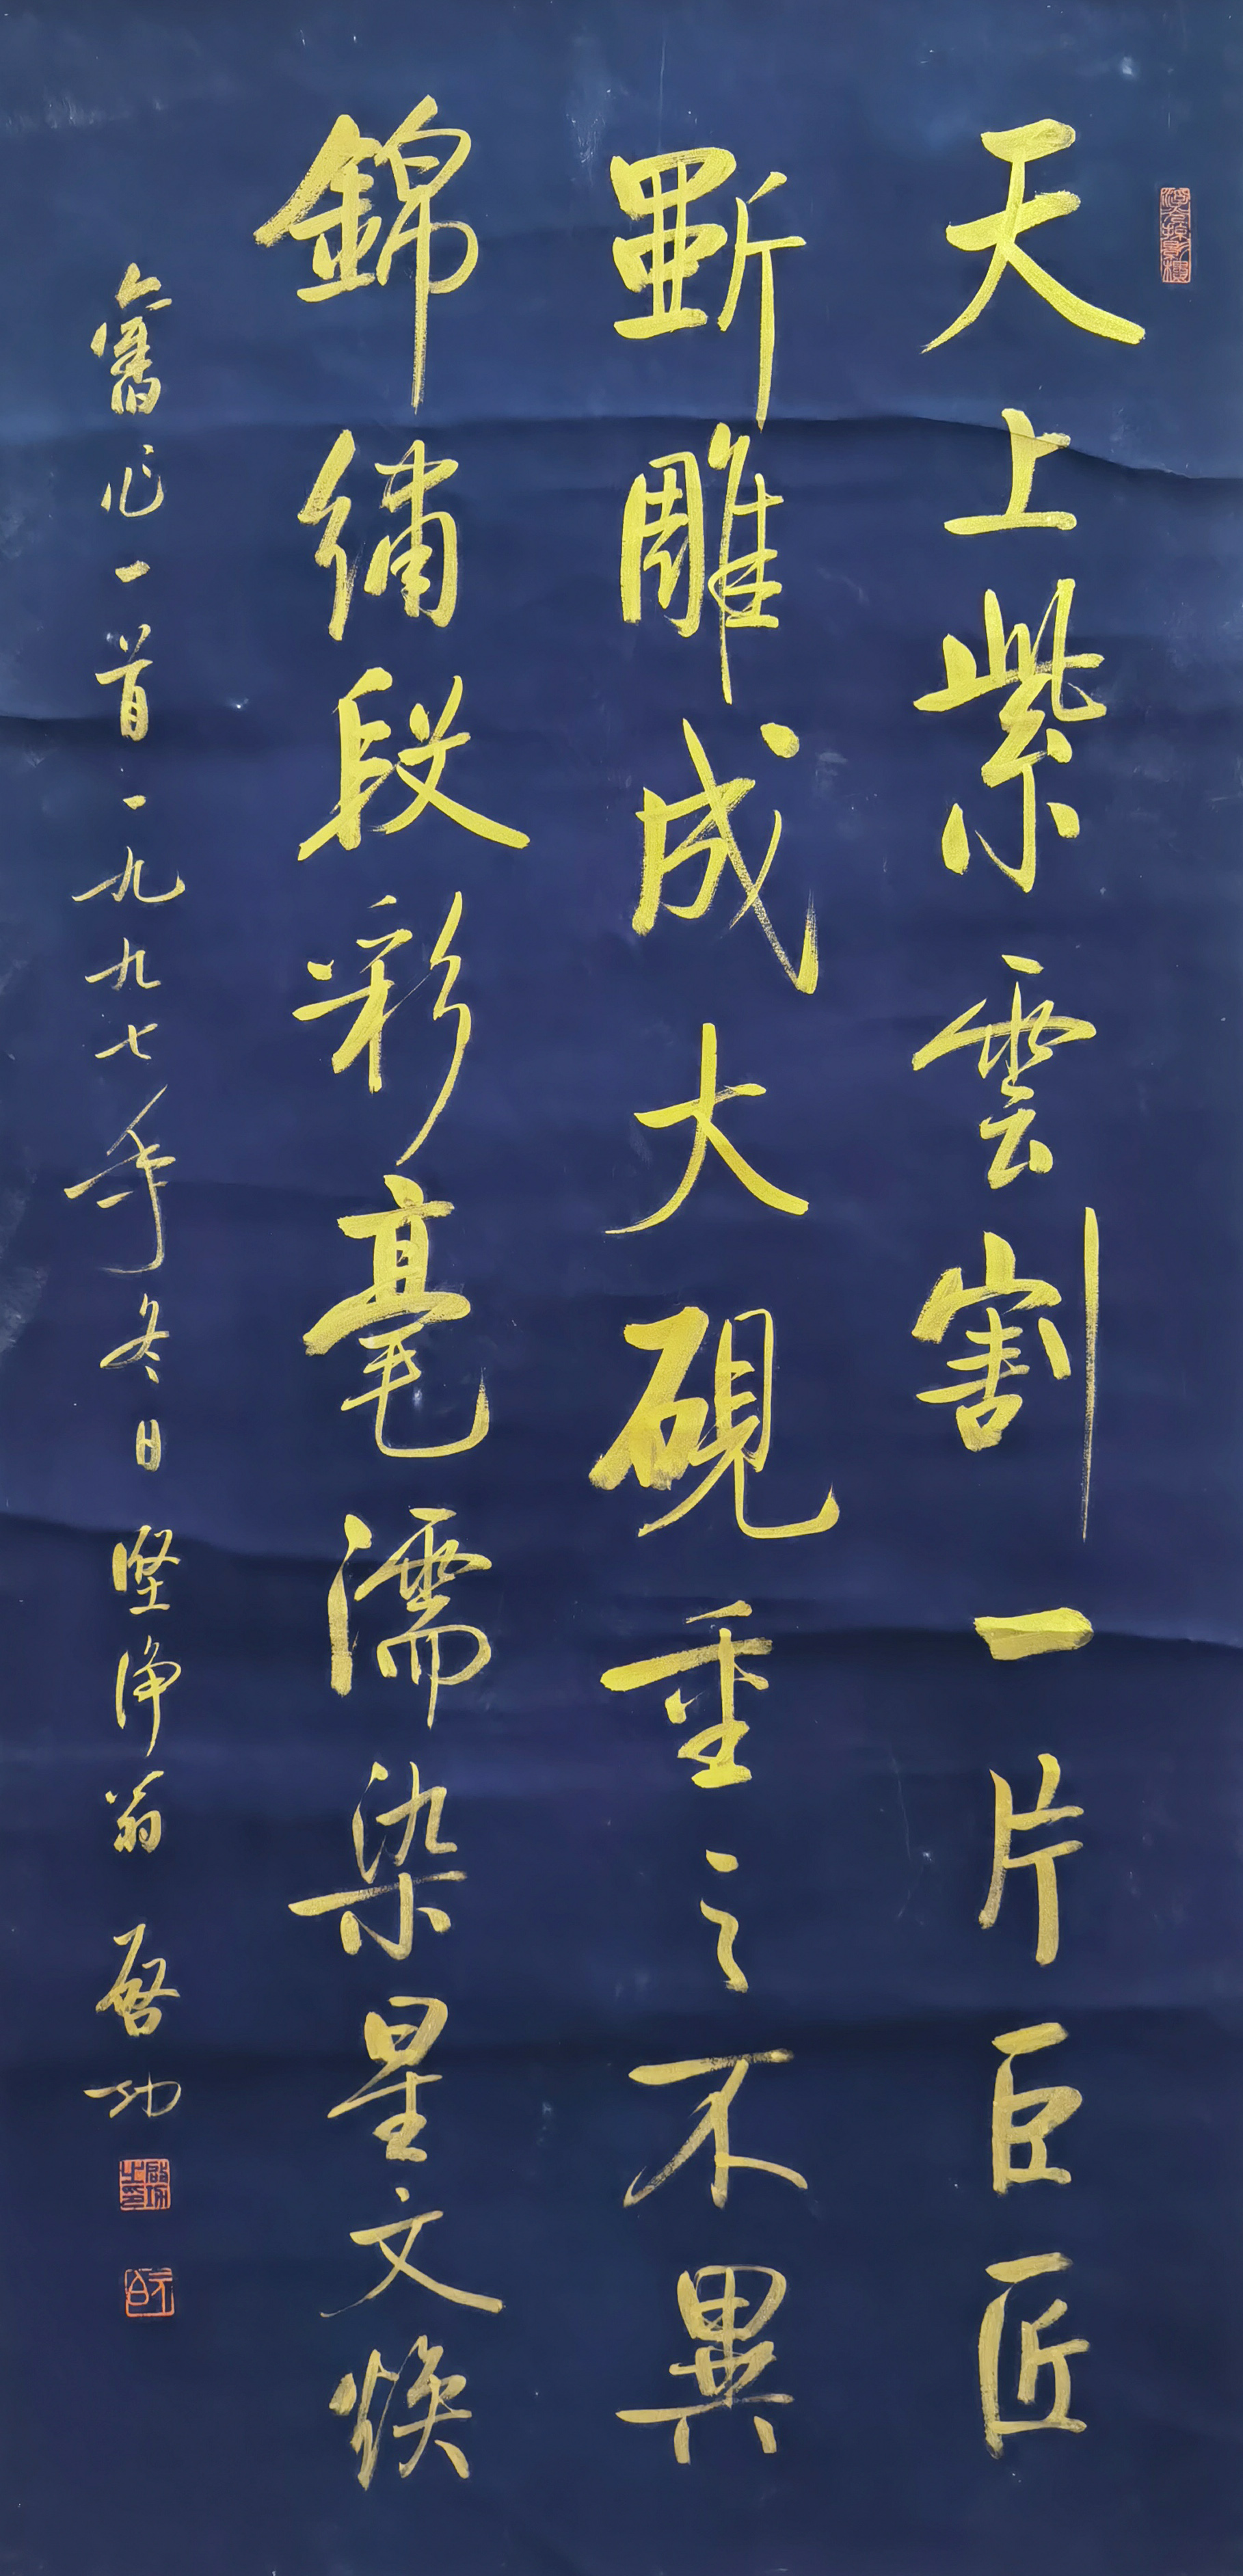 天上紫雲割一片臣匠
斲雕成大硯重之不異
錦繡段彩毫濡染星文煥
舊作一首一九九七年冬日 堅淨翁 啓功